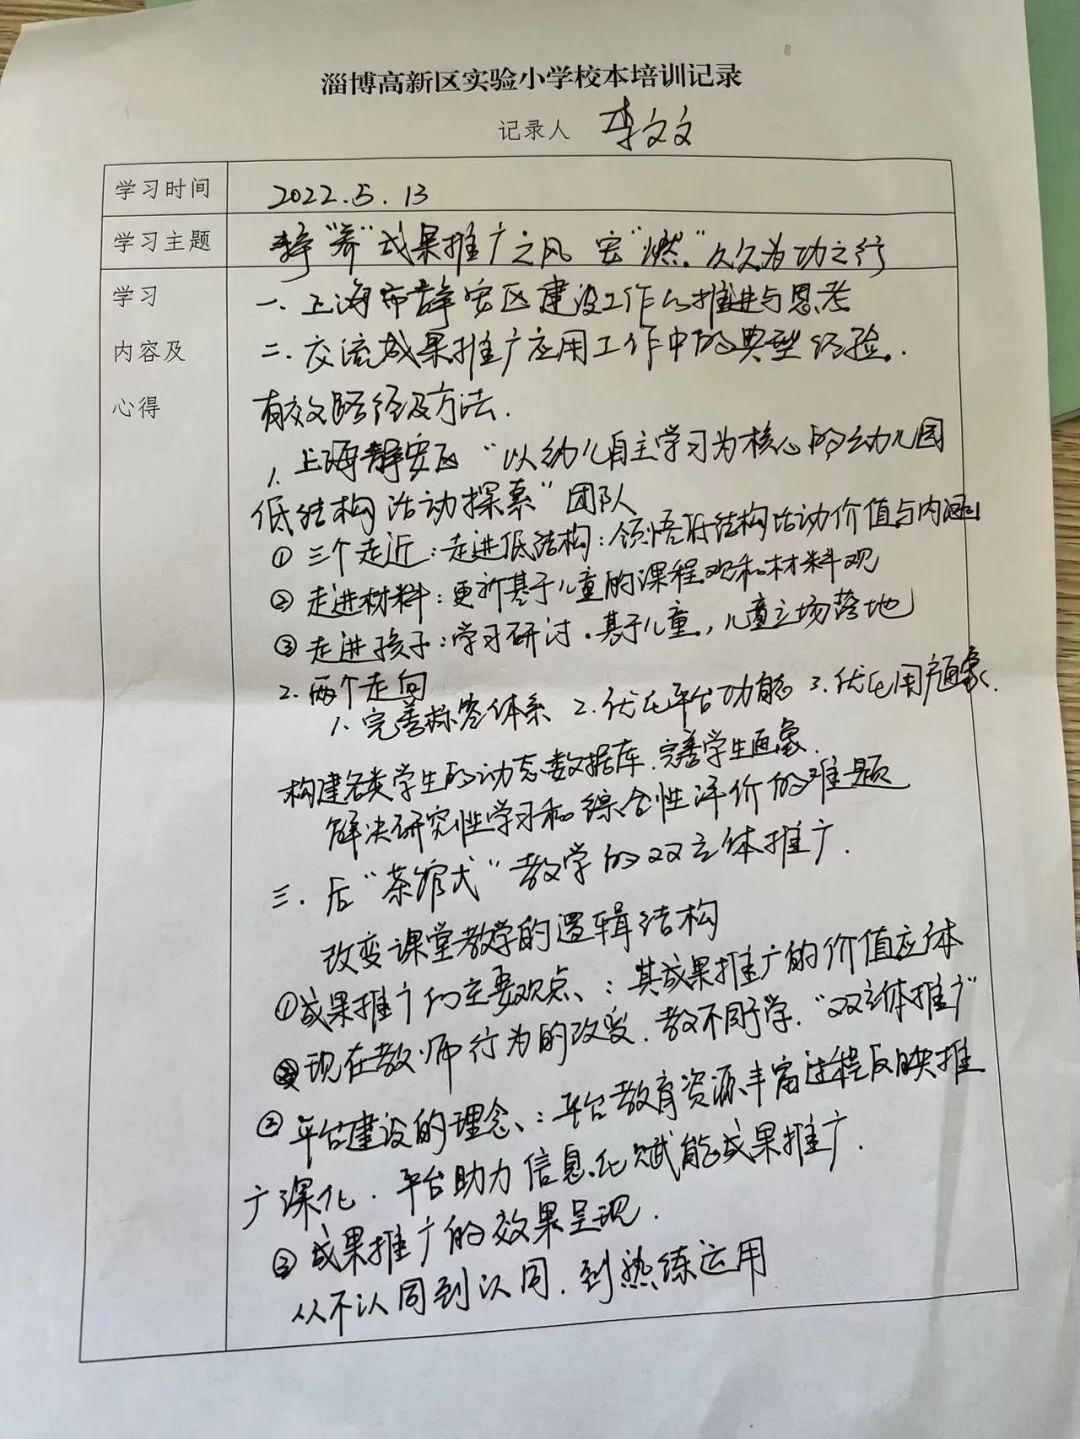 淄博高新区实验小学校本培训记录
记录人 李文文
学习时间 2022.5.13
学习主题 静“养”成果推广之风 安“燃”久久为功之行
学习
内容及
心得
一.上海市静安区建设工作的推进与思考
二.交流成果推广应用工作中的典型经验.
有效路径及方法.
1.上海静安区“以幼儿自主学习为核心的幼儿园
低结构活动探索”团队
①三个走近:走进低结构:领悟低结构活动价值与内涵
②走进材料:更新基于儿童的课程观和材料观
③走进孩子:学习研讨.基于儿童,儿童立场落地
2.两个走向
1.完善标签体系 2.优化平台功能 3.优化用户画象.
构建各类学生的动态数据库.完善学生画象.
解决研究性学习和综合性评价的难题
三.后“茶馆式”教学的双立体推广.
改变课堂教学的逻辑结构
①成果推广的主要观点、:其成果推广的价值应体
现在教师行为的改变.教不同于学.“双立体推广”
②平台建设的理念、:平台教育资源丰富过程反映推
广深化.平台助力信息化赋能成果推广.
③成果推广的效果呈现.
从不认同到认同.到熟练运用